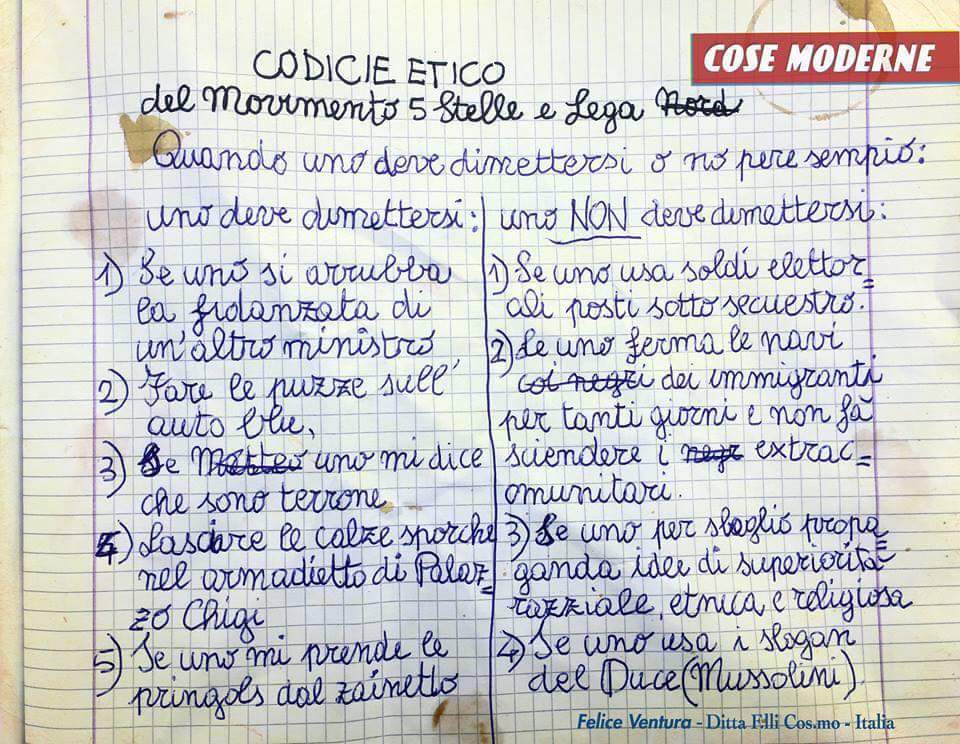 COSE MODERNE
CODICIE ETICO
del Movimento 5 Stelle e Lega Nord
Quando uno deve dimettersi o no pere sempio:
uno deve dimettersi:
1) Se uno si arrubba
la fidanzata di
un'altro ministro
2) Fare le puzze sull'
auto blu,
3) Se Matteo uno mi dice
che sono terrone
4) Lasciare le calze sporche
nel armadietto di Palaz=
zo Chigi
5) Se uno mi prende le
pringols dal zainetto
uno NON deve dimettersi:
1) Se uno usa soldi elettor=
ali posti sotto secuestro.
2) Se uno ferma le navi
coi negri dei immigranti
per tanti giorni e non fà
sciendere i negr extrac=
omunitari.
3) Se uno per sbaglio propa=
ganda idee di superiorità
razziale, etnica e religiosa
4) Se uno usa i slogan
del Duce (Mussolini)
Felice Ventura - Ditta F.lli Cos.mo - Italia